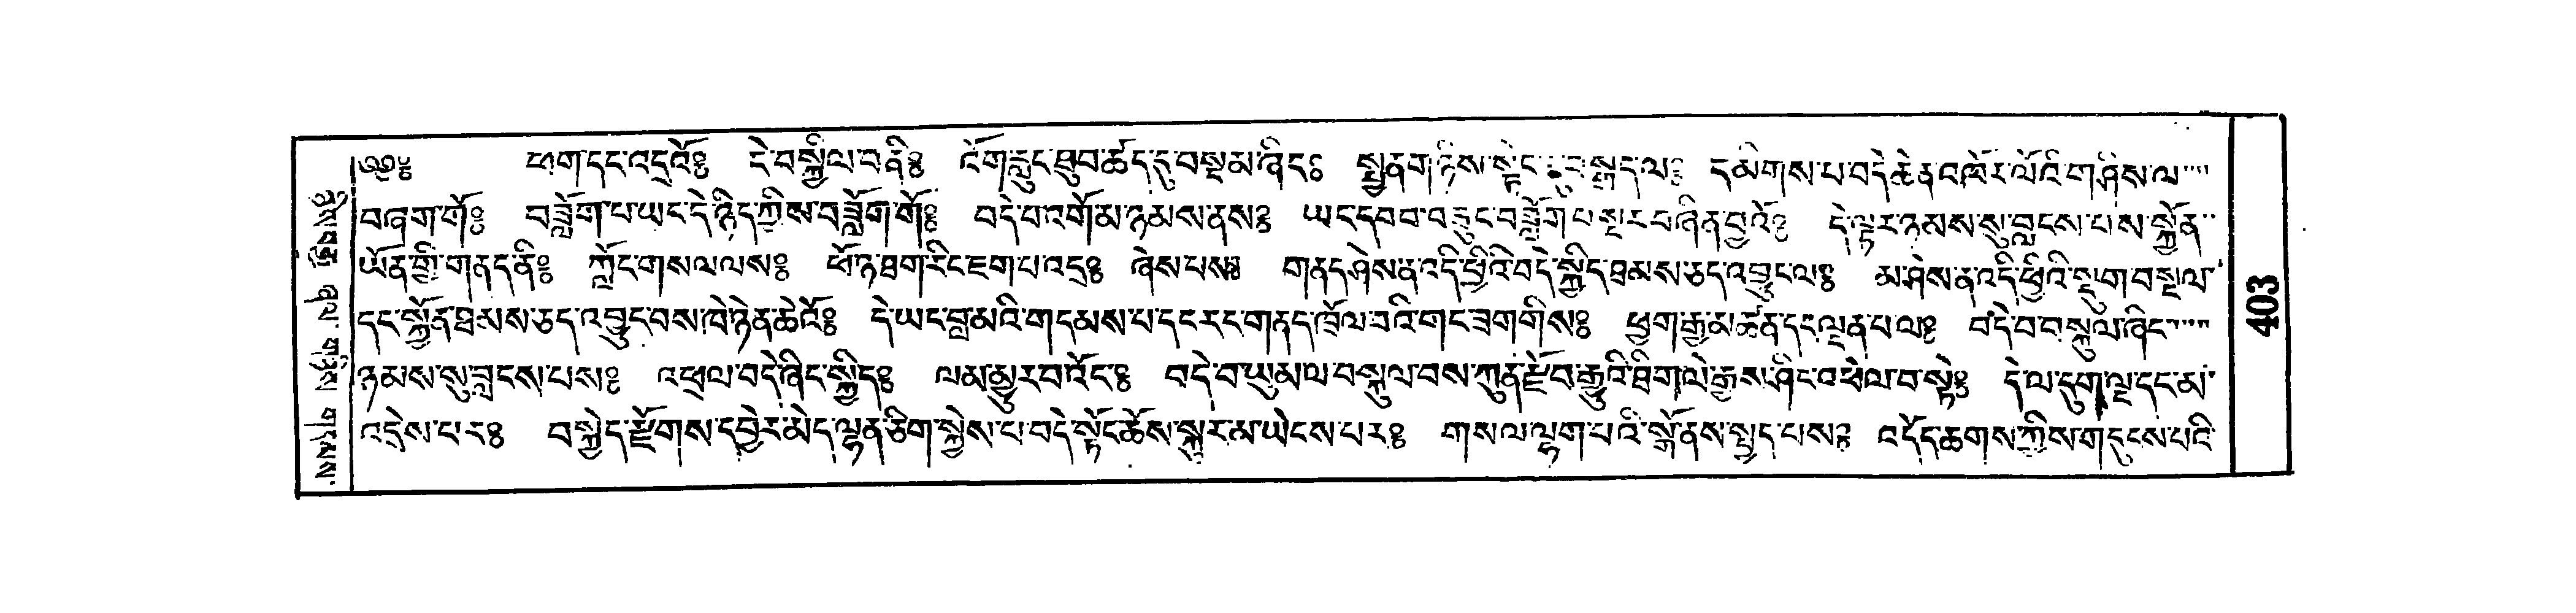 ༄༅༔ ཕག་དང་འདྲའོ༔ དེ་བསྐྱིལ་བ་ནི༔ འོག་རླུང་ཐུབ་ཚོད་དུ་བསྡམ་ཞིང༔ སྤྱན་གཉིས་སྟེང་དུ་སྤྲད་ལ༔ དམིགས་པ་བདེ་ཆེན་འཁོར་ལོའི་གཤིས་ལ
བཞག་གོ༔ བཟློག་པ་ཡང་དེ་ཉིད་ཀྱིས་བཟློག་གོ༔ བདེ་བ་འགོམ་ཉམས་ནས༔ ཡང་དབབ་བཟུང་བཟློག་པ་སྔར་བཞིན་བྱའོ༔ དེ་ལྟར་ཉམས་སུ་བླངས་པས་སྐྱོན
ཡོན་གྱི་གནད་ནི༔ ཀློང་གསལ་ལས༔ ཕོ་ཉ་ཐག་རིང་ཇག་པ་འདྲ༔ ཞེས་པས༔ གནད་ཤེས་ན་འདི་ཕྱིའི་བདེ་སྐྱིད་ཐམས་ཅད་འབྱུང་ལ༔ མ་ཤེས་ན་འདི་ཕྱིའི་སྡུག་བསྔལ
དང་སྐྱོན་ཐམས་ཅད་འབྱུང་བས་ཁེ་ཉེན་ཆེའོ༔ དེ་ཡང་བླ་མའི་གདམས་པ་དང་རང་གནད་ཁྲོལ་བའི་གང་ཟག་གིས༔ ཕྱག་རྒྱ་མཚན་དང་ལྡན་པ་ལ༔ བདེ་བ་བསྐུལ་ཞིང
ཉམས་སུ་བླངས་པས༔ འཕྲལ་བདེ་ཞིང་སྐྱིད༔ ལམ་མྱུར་བ་འོང༔ བདེ་བ་ཡུམ་ལ་བསྐུལ་བས་ཀུན་རྫོབ་རྒྱུའི་ཐིག་ལེ་རྒྱས་ཤིང་འཕེལ་བ་སྟེ༔ དེ་ལ་དུག་ལྔ་དང་མ
འདྲེས་པར༔ བསྐྱེད་རྫོགས་དབྱེར་མེད་ལྷན་ཅིག་སྐྱེས་པ་བདེ་སྟོང་ཆོས་སྐུར་མ་ཡེངས་པར༔ གསལ་ལྷག་པའི་སྒོ་ནས་སྤྱད་པས༔ འདོད་ཆགས་ཀྱིས་གདུངས་པའི
403